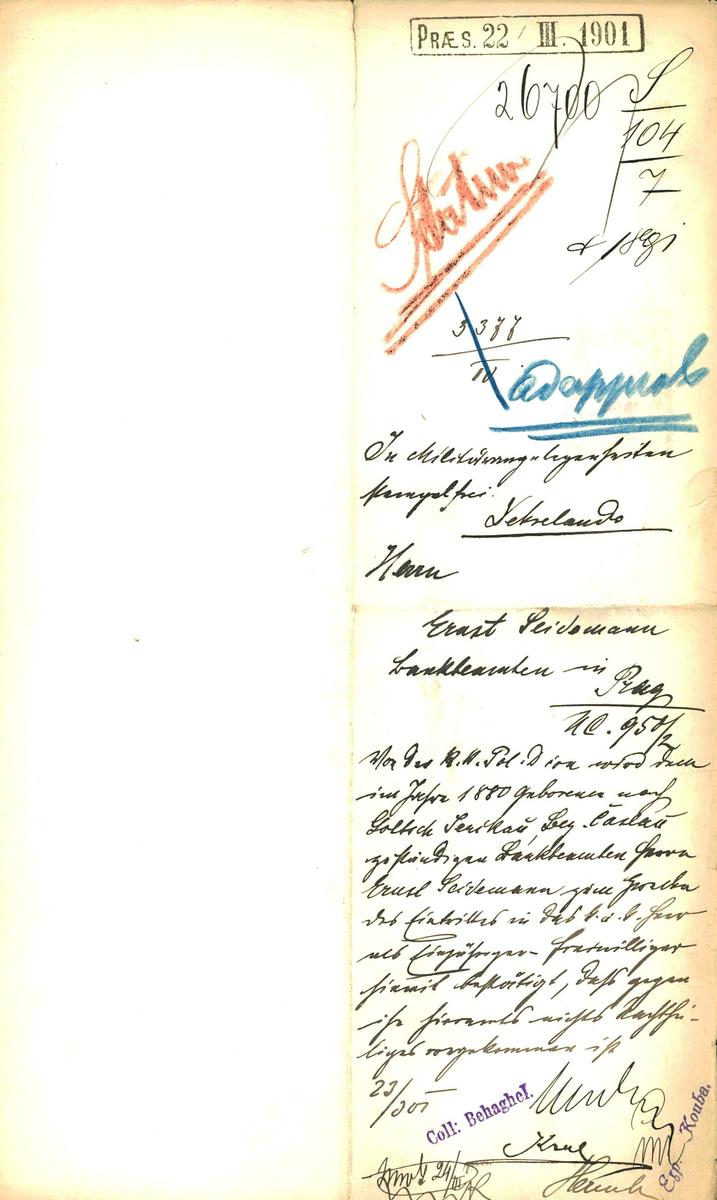 PRÆS. 22 / III. 1901
26700
S
104
7
3377
IV
ad approb
In Militärangelegenheiten
stempelfrei.
Dekretando
Herrn
Ernst Seidemann
Bankbeamten in
Prag
NC. 950/2
Von der k. k. Pol: D ion wird dem
im Jahre 1880 geborenen nach
Goltsch Jenikau, Bez. Caslau
zuständigen Bankbeamten Herrn
Ernst Seidemann zum Zwecke
des Eintrittes in das k. u. k. Heer
als Einjähriger-Freiwilliger
hiemit bestätigt, daß gegen
ihn hieramts nichts Nachthei-
liges vorgekommen ist
23/
Coll: Behaghel.
Exp. Kouba.